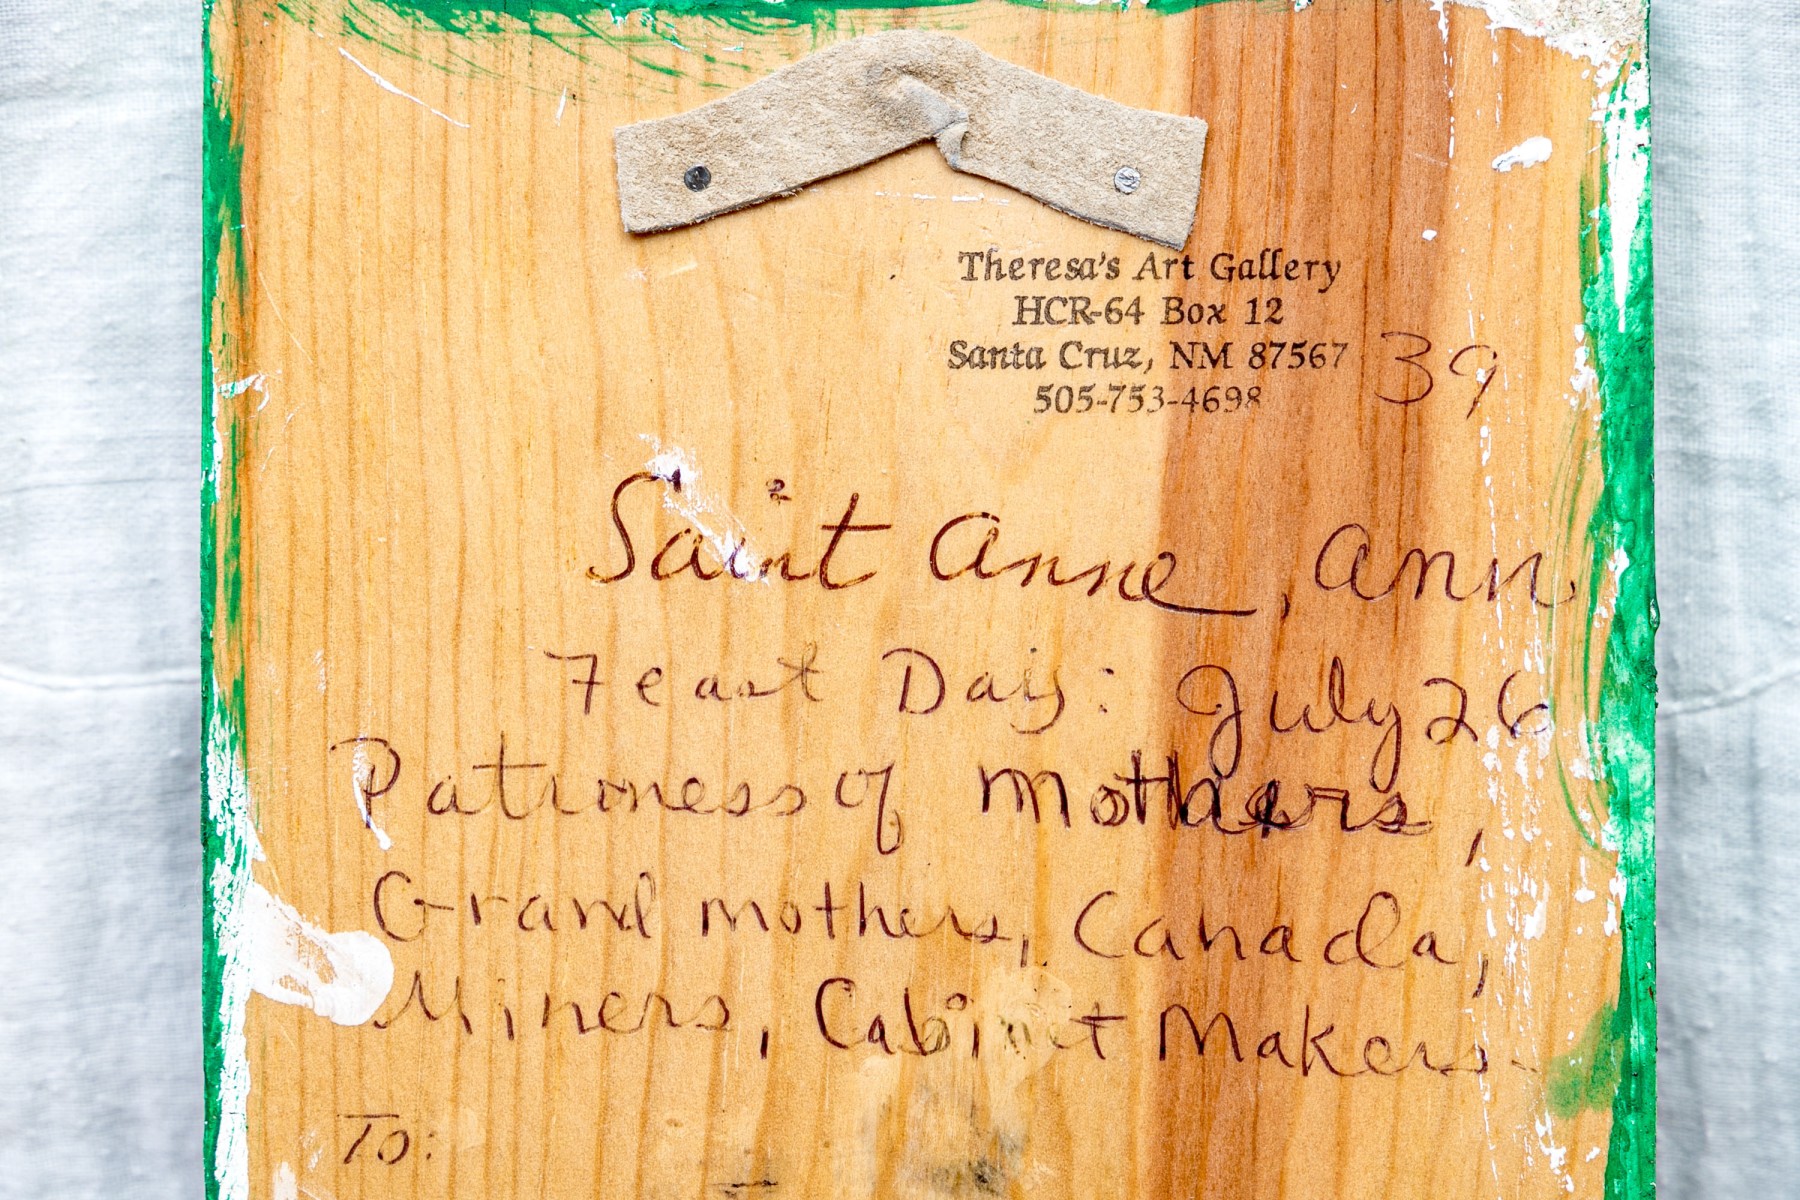 Theresa's Art Gallery
HCR-64 Box 12
Santa Cruz, NM 87567 39
505-753-4698
Saint Anne, Ann
Feast Day: July 26
Patroness of Mothers,
Grand mothers, Canada,
Miners, Cabinet Makers.
To: